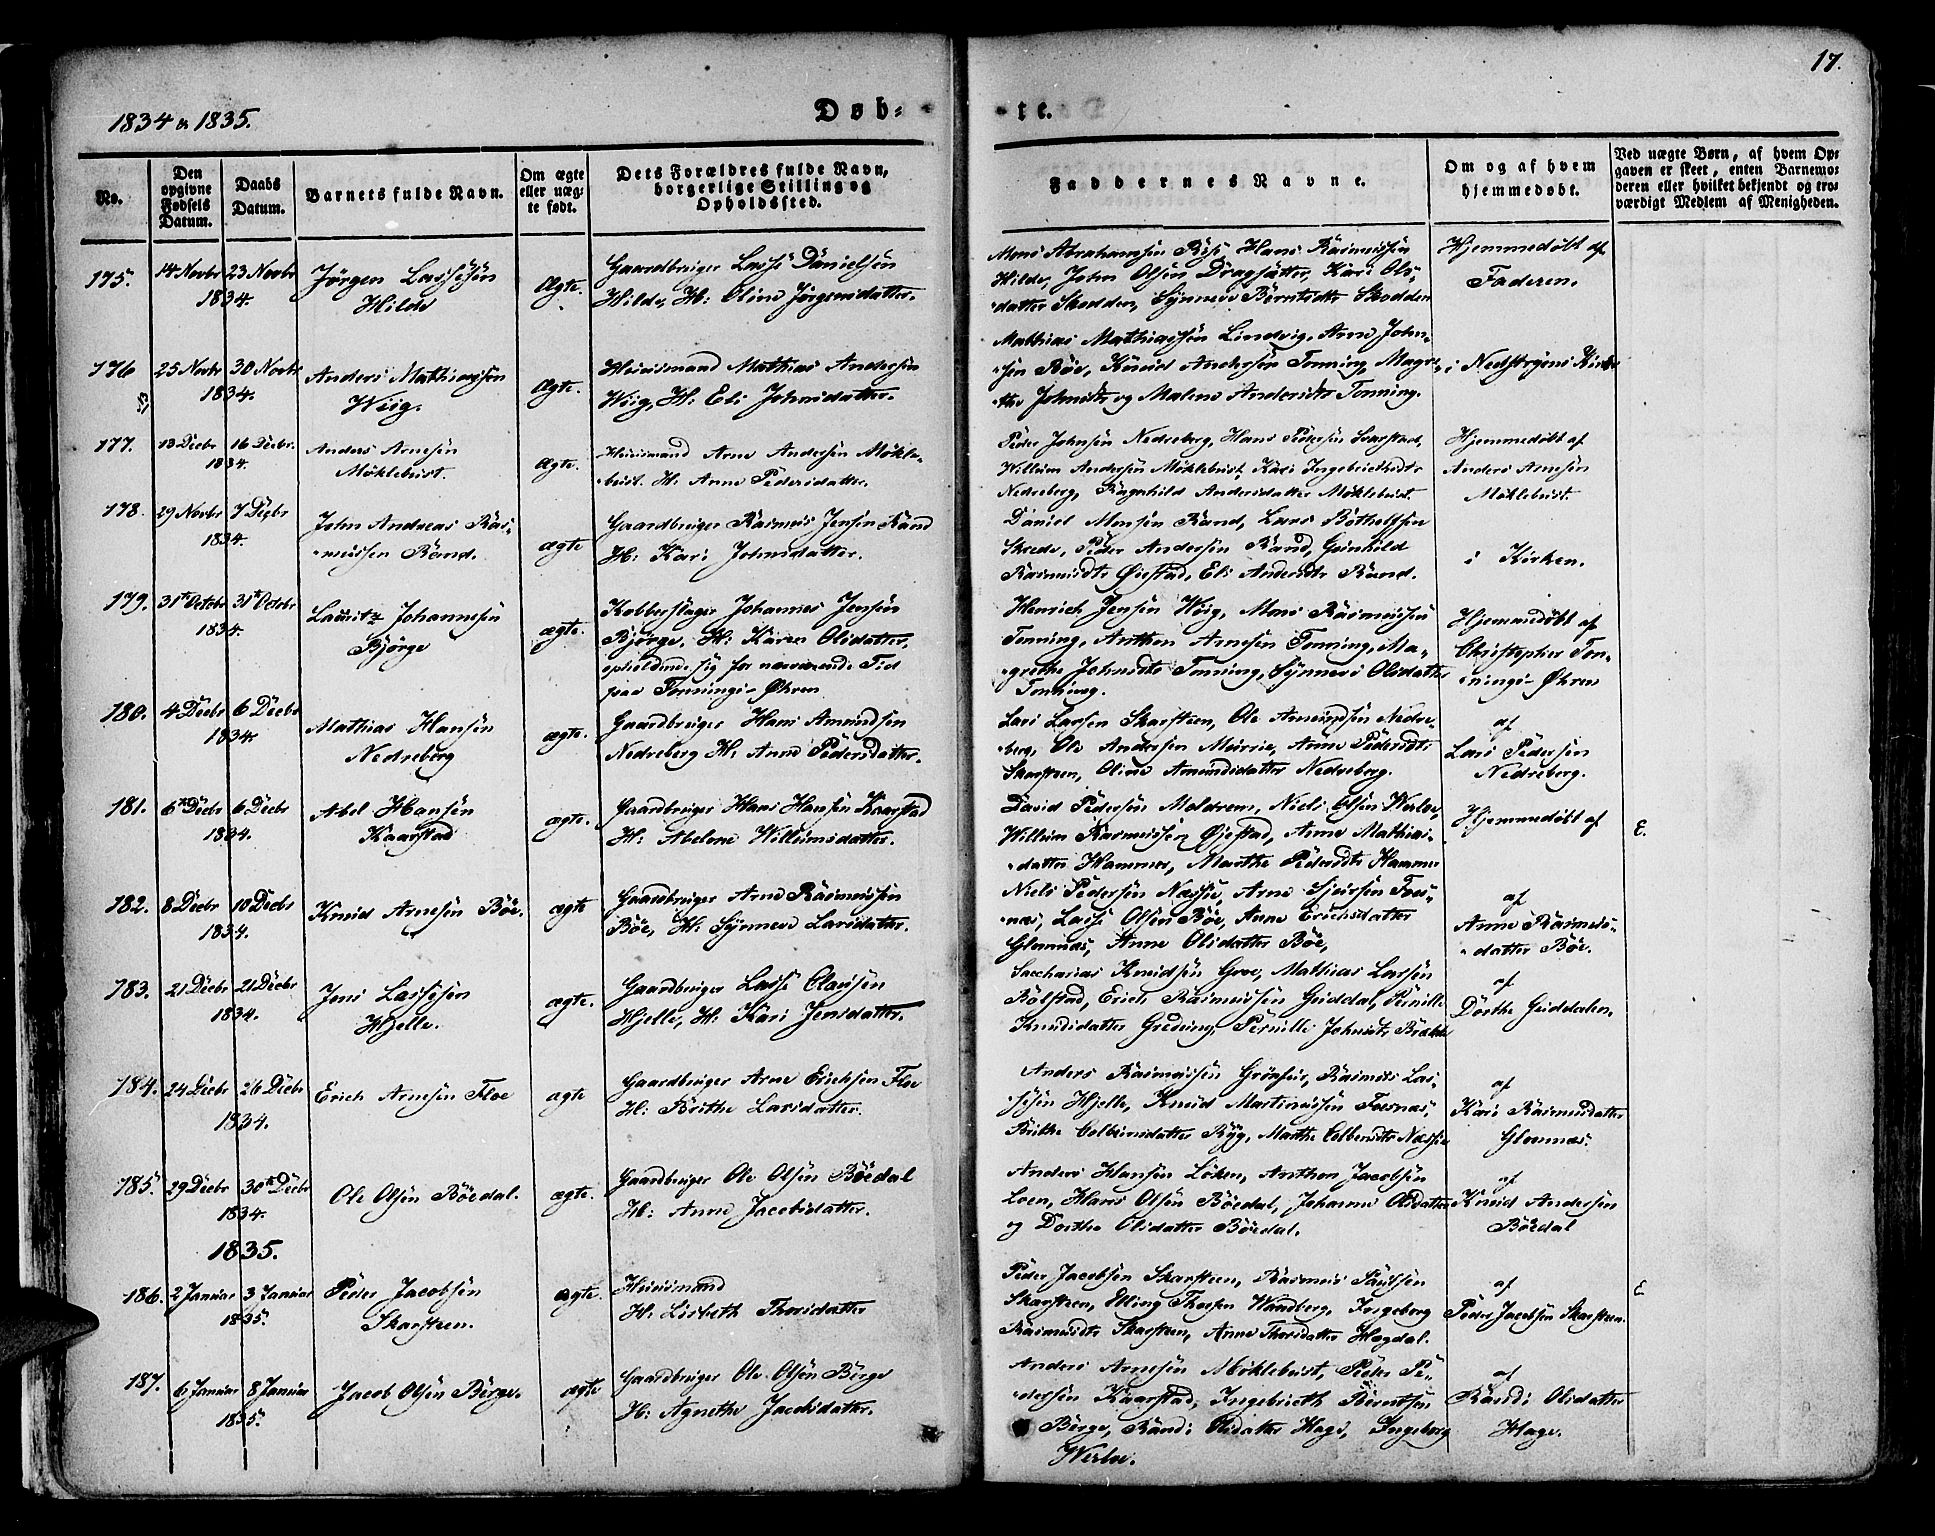 17.
1834 & 1835.
Døb-
-te.
No.
Den opgivne Fødsels Datum.
Daabs Datum.
Barnets fulde Navn.
Om ægte eller uægte født.
Dets Forældres fulde Navn, borgerlige Stilling og Opholdssted.
Faddernes Navne.
Om og af hvem hjemmedøbt.
Ved uægte Børn, af hvem Opgaven er skeet, enten Barnemoderen eller hvilket bekjendt og troværdigt Medlem af Menigheden.
175. 14 Novbr 23 Novbr 1834.
Jørgen Lassesen
Hilde
Ægte.
Gaardbruger Lasse Danielsen
Hilde, H: Oline Jørgensdatter.
Mons Abrahamsen Hans Rasmussen
Hilde, John Olsen Dragsætter, Kari Ols-
datter Skodden, Synneve Berntsdtr Skodden
Hjemmedøbt af
Faderen.
176 25 Novbr 30 Novbr 1834.
Anders Mathiassen
Wiig.
Ægte.
Huusmand Mathias Andersen
Wiig, H: Eli Johnsdatter.
Mathias Mathiassen Lindvig, Arne John-
sen Bøe, Knud Andersen Tonning, Magre-
the Johnsdtr og Malene Andersdtr Tonning.
i Nedstryens Kirke
177. 13 Decbr 16 Decbr. 1834.
Anders Arnesen
Møklebust.
Ægte.
Huusmand Arne Andersen Møkle-
bust. H: Anne Pedersdatter.
Peder Johnsen Nedreberg, Hans Pedersen
Willum Andersen Møklebust, Kari Ingebrigtsdtr
Nedreberg, Ragnhild Andersdatter Møklebust.
Hjemmedøbt af
Anders Arnesen
Møklebust
178. 29 Novbr 7 Decbr 1834.
John Andreas Ras-
mussen Rand.
ægte
Gaardbruger Rasmus Jensen Rand
H: Kari Johnsdatter.
Daniel Monsen Rand, Lars Bothelfsen
Skrede, Peder Andersen Rand, Gunhild
Rasmusdtr Øiestad, Eli Andersdtr Rand.
i Kirken.
179. 31te Octobr 31te Octobr 1834.
Lauritz Johannesen
Bjørge
ægte.
Kobberslager Johannes Jensen
Bjørge, H: Karen Olsdatter,
opholdende sig for nærværende Tid
paa Tonnings-Øhren
Henrich Jensen Wiig, Mons Rasmussen
Tonning, Anthon Arnesen Tonning, Ma-
grethe Johnsdtr Tonning, Synneve Olsdatter
Tonning.
Hjemmedøbt af
Christopher Ton-
nings-Øhren
180. 4 Decbr 6 Decbr 1834.
Mathias Hansen
Nedreberg
ægte.
Gaardbruger Hans Amundsen
Nedreberg H: Anne Pedersdatter.
Lars Larsen Skarsteen, Ole Amundsen Nedre-
berg, Ole Andersen Murrie, Anne Pedersdtr
Skarsteen, Oline Amundsdatter Nedreberg.
af
Lars Pedersen
Nedreberg.
181. 6te Decbr 6 Decbr 1834.
Abel Hansen
Kaarstad
ægte.
Gaardbruger Hans Hansen Kaarstad
H: Abelone Willumsdatter.
David Pedersen Meldrem, Niels Olsen Werlo,
Willum Rasmussen Øjestad, Anne Mathias-
datter Hammer, Marthe Pedersdtr Hammer
Hjemmedøbt af
E.
182. 8 Decbr 10 Decbr 1834.
Knud Arnesen Bøe.
ægte
Gaardbruger Arne Rasmussen
Bøe, H: Synneve Larsdatter.
Niels Pedersen Næsse, Arne Sjursen Fos-
næs, Lasse Olsen Bøe, Anne Erichsdatter
Glomnæs, Anne Olsdatter Bøe,
af
Anne Rasmus-
datter Bøe.
183. 21 Decbr 21 Decbr 1834.
Jens Lassesen
Hjelle.
ægte.
Gaardbruger Lasse Clausen
Hjelle, H: Kari Jensdatter.
Sacharias Knudsen Groe, Mathias Larsen
Bolstad, Erich Rasmussen Guddal, Pernille
Knudsdatter Greding, Pernille Johnsdtr
af
Dorthe Guddalen.
184. 24 Decbr 26 Decbr 1834.
Erich Arnesen Floe
ægte
Gaardbruger Arne Erichsen Floe
H: Brithe Larsdatter.
Anders Rasmussen Rasmus Las-
sesen Hjelle, Knud Martinussen Fosnæs,
Brithe Colbensdatter Ryg, Marthe Colbensdtr Næsse
af
Kari Rasmusdatter
Glomnæs.
185. 29 Decbr 30te Decbr 1834.
Ole Olsen Bøedal.
ægte.
Gaardbruger Ole Olsen Bøedal
H: Anne Jacobsdatter.
Anders Hansen Løken, Anthon Jacobsen
Loen, Hans Olsen Bøedal, Johanne Olsdatter
og Dorthe Olsdatter Bøedal.
af
Knud Andersen
Bøedal
1835.
186. 2 Januar 3 Januar 1835.
Peder Jacobsen
Skarsteen.
ægte.
Huusmand
H: Lisbeth Thorsdatter
Peder Jacobsen Skarsteen, Rasmus Paulsen
Skarsteen, Elling Thorsen Wandberg, Ingeborg
Rasmusdtr Skarsteen, Anne Thorsdatter Hogdal.
af
Peder Jacobsen Skarsteen.
E
187. 6 Januar 8 Januar 1835.
Jacob Olsen Berge.
ægte
Gaardbruger Ole Olsen Berge
H: Agnethe Jacobsdatter.
Anders Arnesen Møklebust, Peder Pe-
dersen Kaarstad, Ingebrigth Berntsen
Berge, Randi Olsdatter Hage, Ingeborg
Werlo.
af
Randi Olsdatter
Hage.